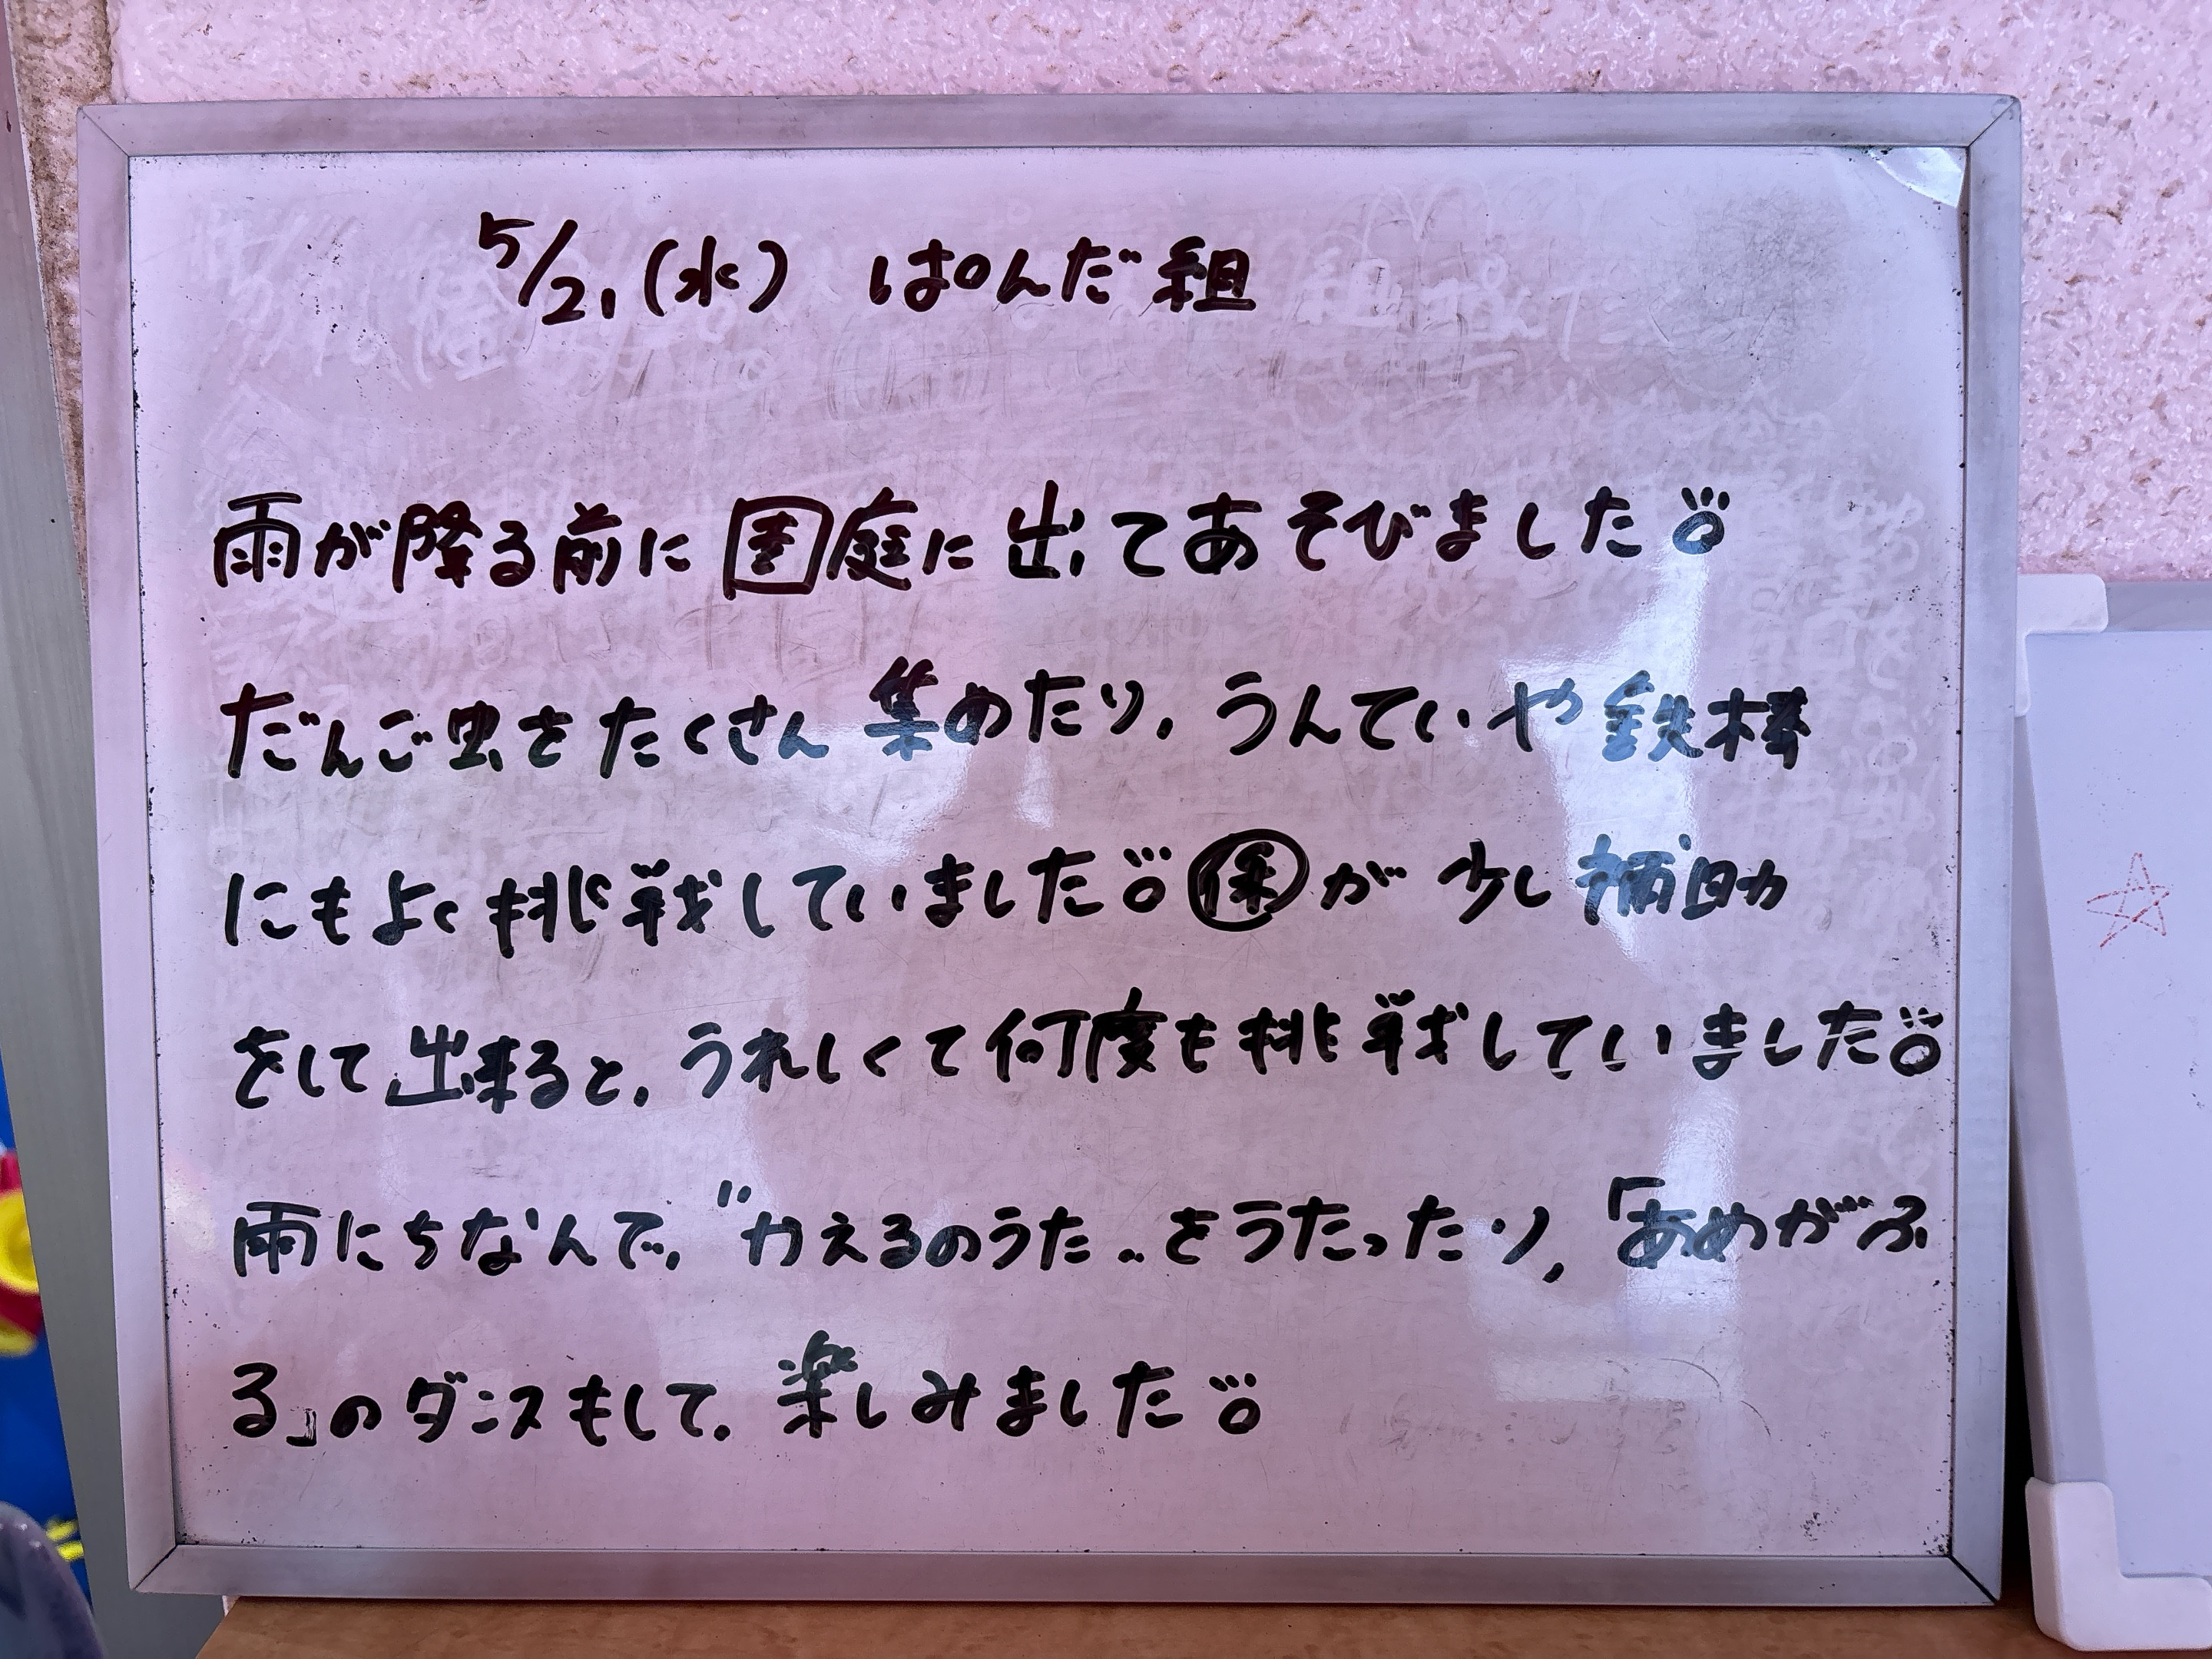 5/21(水) ぱんだ組
雨が降る前に園庭に出てあそびました
だんご虫をたくさん集めたり、うんていや鉄棒
にもよく挑戦していました㋭が少し補助
をして出来ると、うれしくて何度も挑戦していました
雨にちなんで、"かえるのうた"をうたったり、「あめがふ
る」のダンスもして、楽しみました